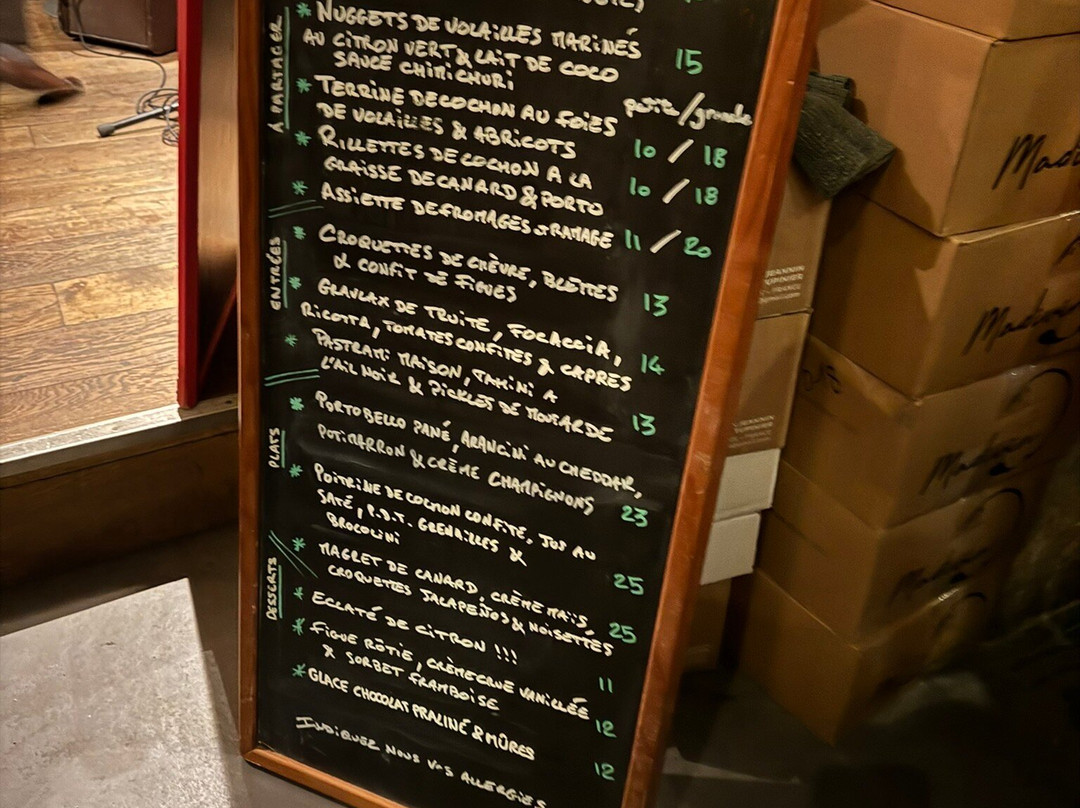 À PARTAGER
* NUGGETS DE VOLAILLES MARINÉS
AU CITRON VERT & LAIT DE COCO 15
SAUCE CHIMICHURI
petite / grande
* TERRINE DE COCHON AU FOIES
DE VOLAILLES & ABRICOTS 10 / 18
* RILLETTES DE COCHON A LA
GRAISSE DE CANARD & PORTO 10 / 18
* ASSIETTE DE FROMAGES 11 / 20
ENTRÉES
* CROQUETTES DE CHÈVRE, BLETTES
& CONFIT DE FIGUES 13
* GRAVLAX DE TRUITE, FOCACCIA,
RICOTTA, TOMATES CONFITES & CAPRES 14
* PASTRAMI MAISON, TAHINI A
L'AIL NOIR & PICKLES DE MOUTARDE 13
PLATS
* PORTOBELLO PANÉ, ARANCINI AU CHEDDAR,
POTIMARRON & CRÈME CHAMPIGNONS 23
* POITRINE DE COCHON CONFITE, JUS AU
SATÉ, P.D.T. GRENAILLES &
BROCOLINI 25
* MAGRET DE CANARD, CRÈME MAÏS,
CROQUETTES JALAPEÑOS & NOISETTES 25
DESSERTS
* ECLATÉ DE CITRON !!! 11
* FIGUE RÔTIE, CRÈME CRUE VANILLÉE
& SORBET FRAMBOISE 12
* GLACE CHOCOLAT PRALINÉ & MÛRES 12
INDIQUEZ NOUS VOS ALLERGIES
JEANNIN
FRANCE
JEANNIN